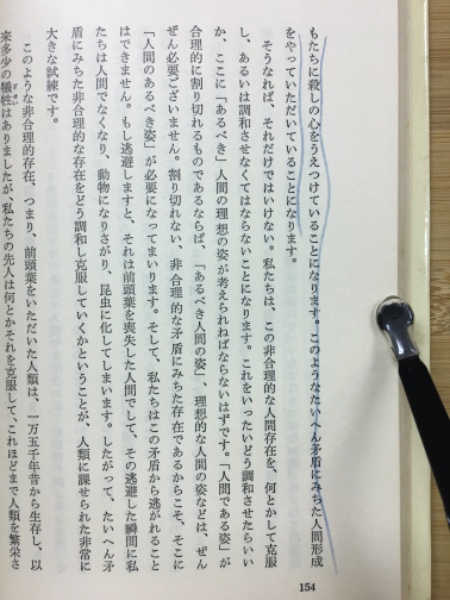 もたちに殺しの心をうえつけていることになります。このようなたいへん矛盾にみちた人間形成
をやっていただいていることになります。
そうなれば、それだけではいけない。私たちは、この非合理的な人間存在を、何とかして克服
し、あるいは調和させなくてはならないことになります。これをいったいどう調和させたらいい
か、ここに「あるべき」人間の理想の姿が考えられねばならないはずです。「人間である姿」が
合理的に割り切れるものであるならば、「あるべき人間の姿」、理想的な人間の姿などは、ぜん
ぜん必要ございません。割り切れない、非合理的な矛盾にみちた存在であるからこそ、そこに
「人間のあるべき姿」が必要になってまいります。そして、私たちはこの矛盾から逃がれること
はできません。もし逃避しますと、それは前頭葉を喪失した人間でして、その逃避した瞬間に私
たちは人間でなくなり、動物になりさがり、昆虫に化してしまいます。したがって、たいへん矛
盾にみちた非合理的な存在をどう調和し克服していくかということが、人類に課せられた非常に
大きな試練です。
このような非合理的存在、つまり、前頭葉をいただいた人類は、一万五千年昔から生存し、以
来多少の犠牲はありましたが、私たちの先人は何とかそれを克服して、これほどまで人類を繁栄さ
ぎせい
154